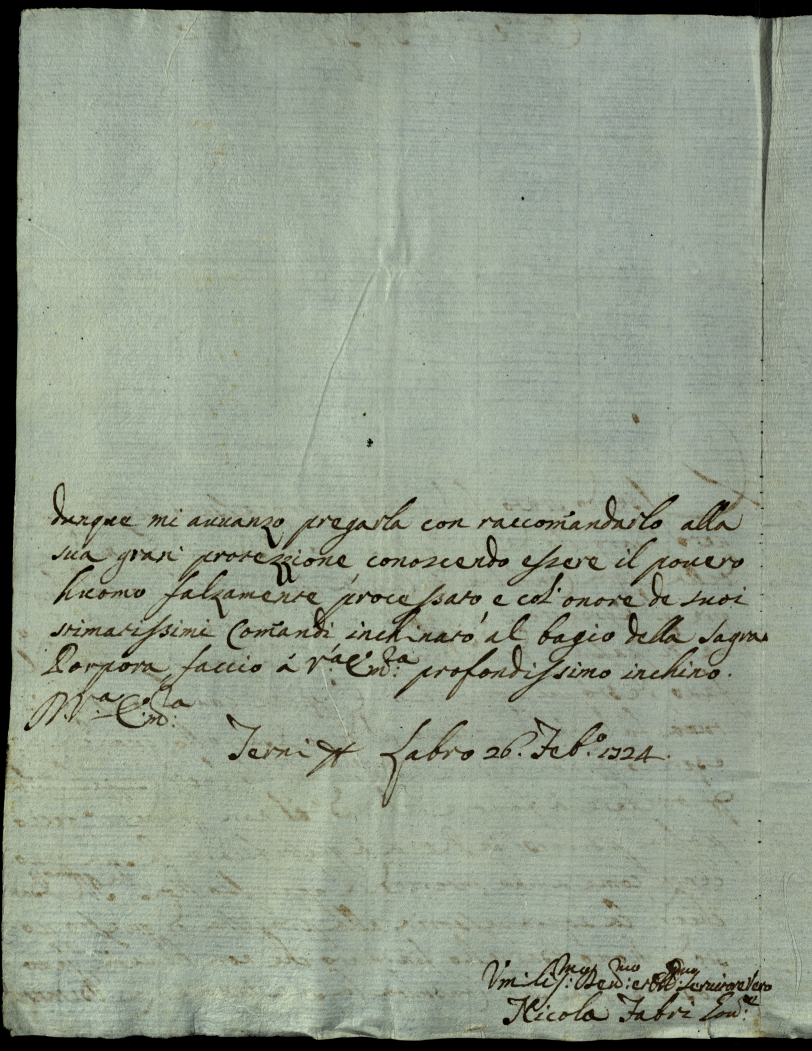 dunque mi auuanzo pregarla con raccom̃andarlo alla
sua gran protezzione conoscendo essere il pouero
huomo falzamente processato, e col' onore de suoi
stimatissimi Com̃andi inchinato al bagio della Sagra
Porpora faccio á V.ra Em.za profondissimo inchino.
D. V.ra Em.za
Terni Labro 26. Feb.o 1724.
Vmiliss.mo Deu.mo et Obl.mo Seruitore Vero
Nicola Fabri